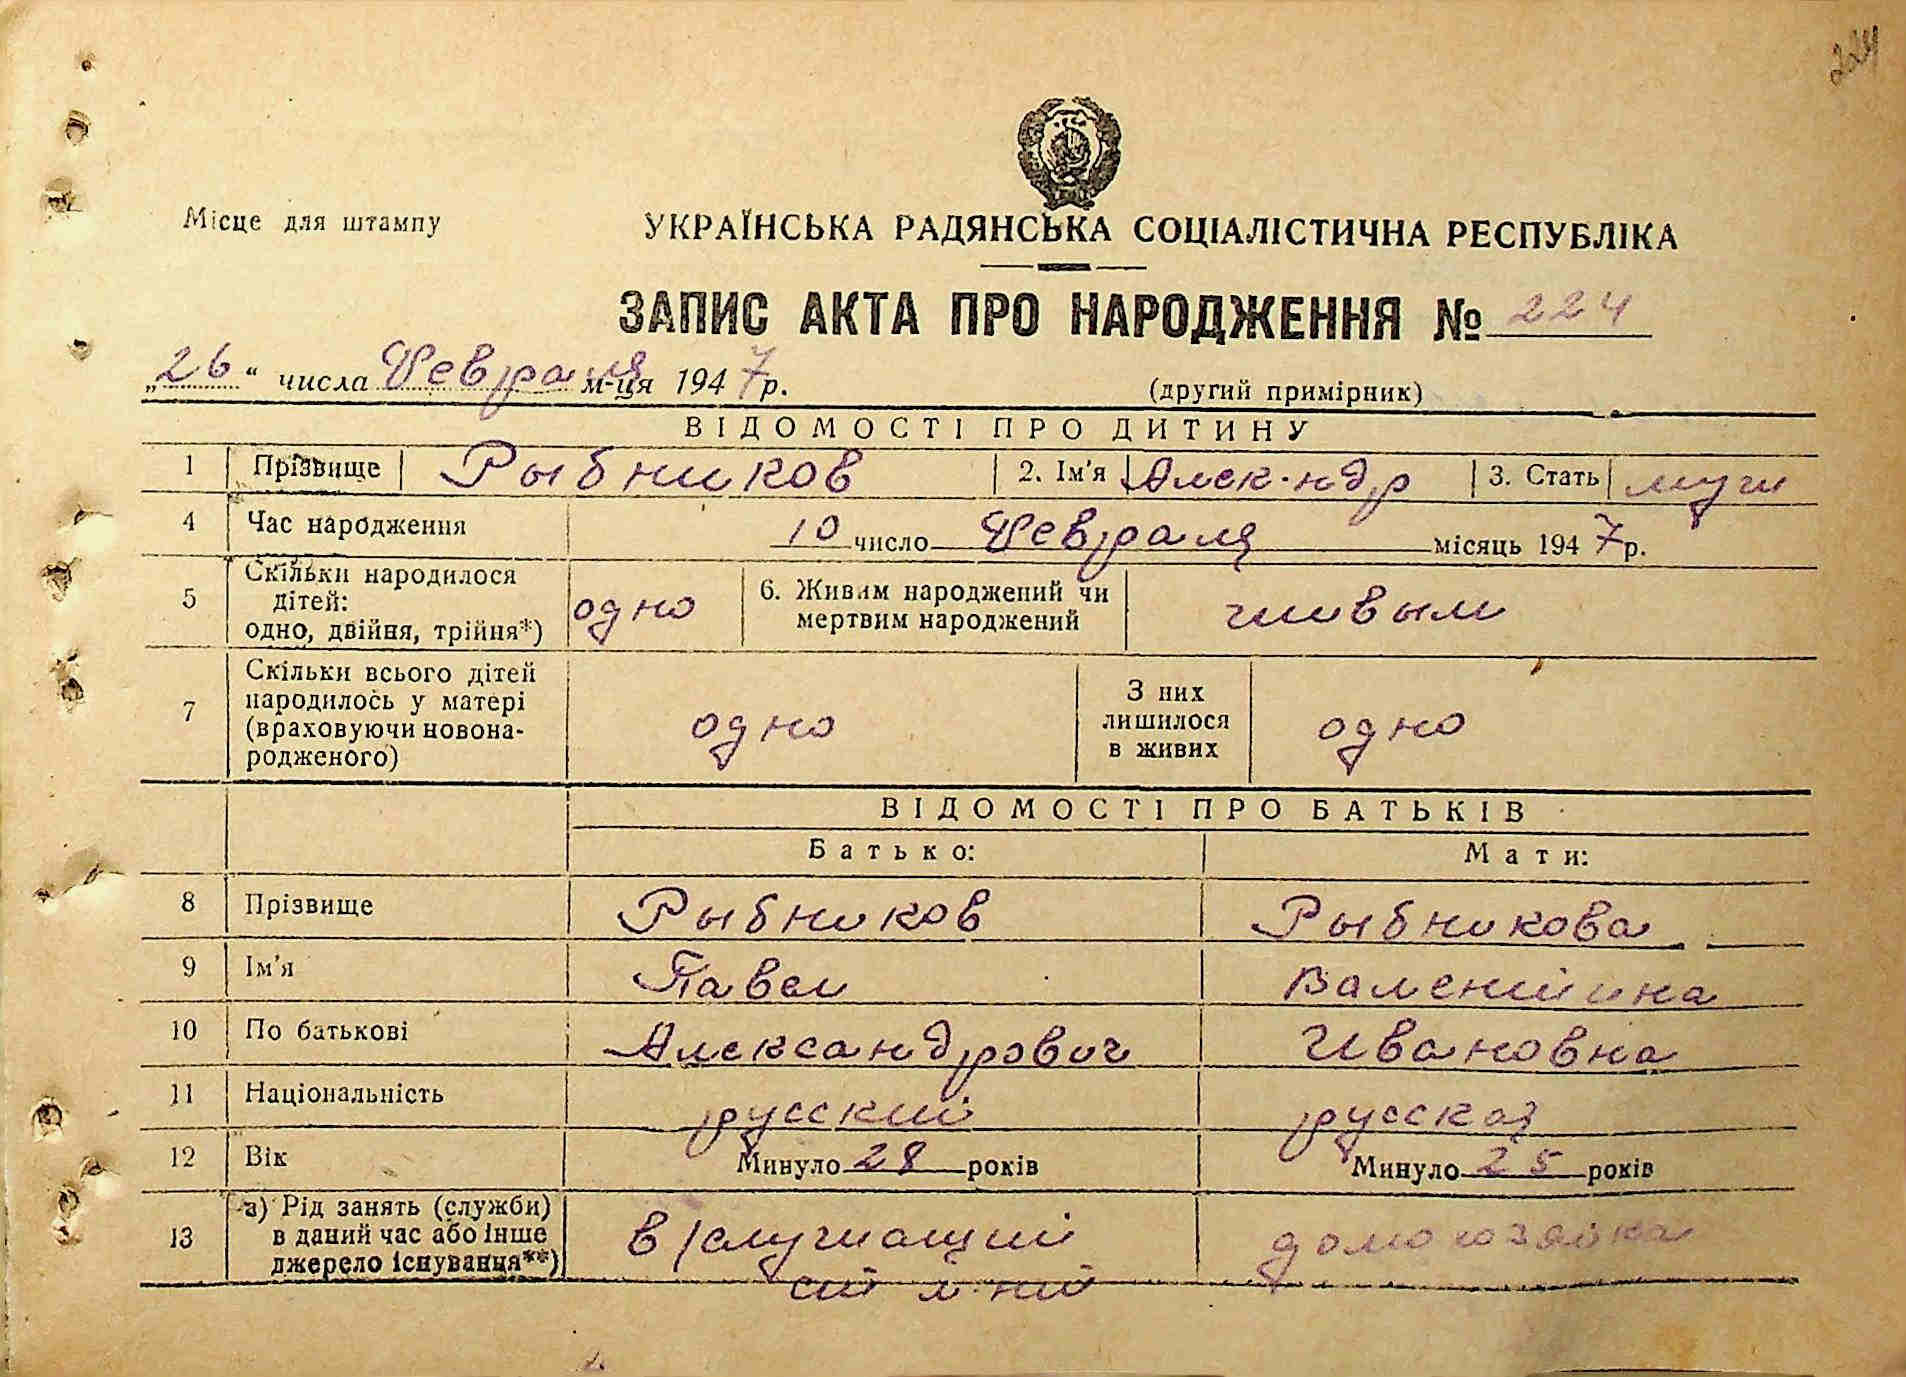 224
Місце для штампу
УКРАЇНСЬКА РАДЯНСЬКА СОЦІАЛІСТИЧНА РЕСПУБЛІКА
ЗАПИС АКТА ПРО НАРОДЖЕННЯ № 224
„26“ числа Февраля м-ця 1947 р.
(другий примірник)
ВІДОМОСТІ ПРО ДИТИНУ
1 Прізвище Рыбников 2. Ім'я Алек-ндр 3. Стать муж
4 Час народження 10 число Февраля місяць 1947 р.
5 Скільки народилося дітей: одно, двійня, трійня*) одно 6. Живим народжений чи мертвим народжений живым
7 Скільки всього дітей народилось у матері (враховуючи новона-родженого) одно З них лишилося в живих одно
ВІДОМОСТІ ПРО БАТЬКІВ
Батько: Мати:
8 Прізвище Рыбников Рыбникова
9 Ім'я Павел Валентина
10 По батькові Александрович Ивановна
11 Національність русский русская
12 Вік Минуло 28 років Минуло 25 років
13 а) Рід занять (служби) в даний час або інше джерело існування**) в/служащий домохозяйка